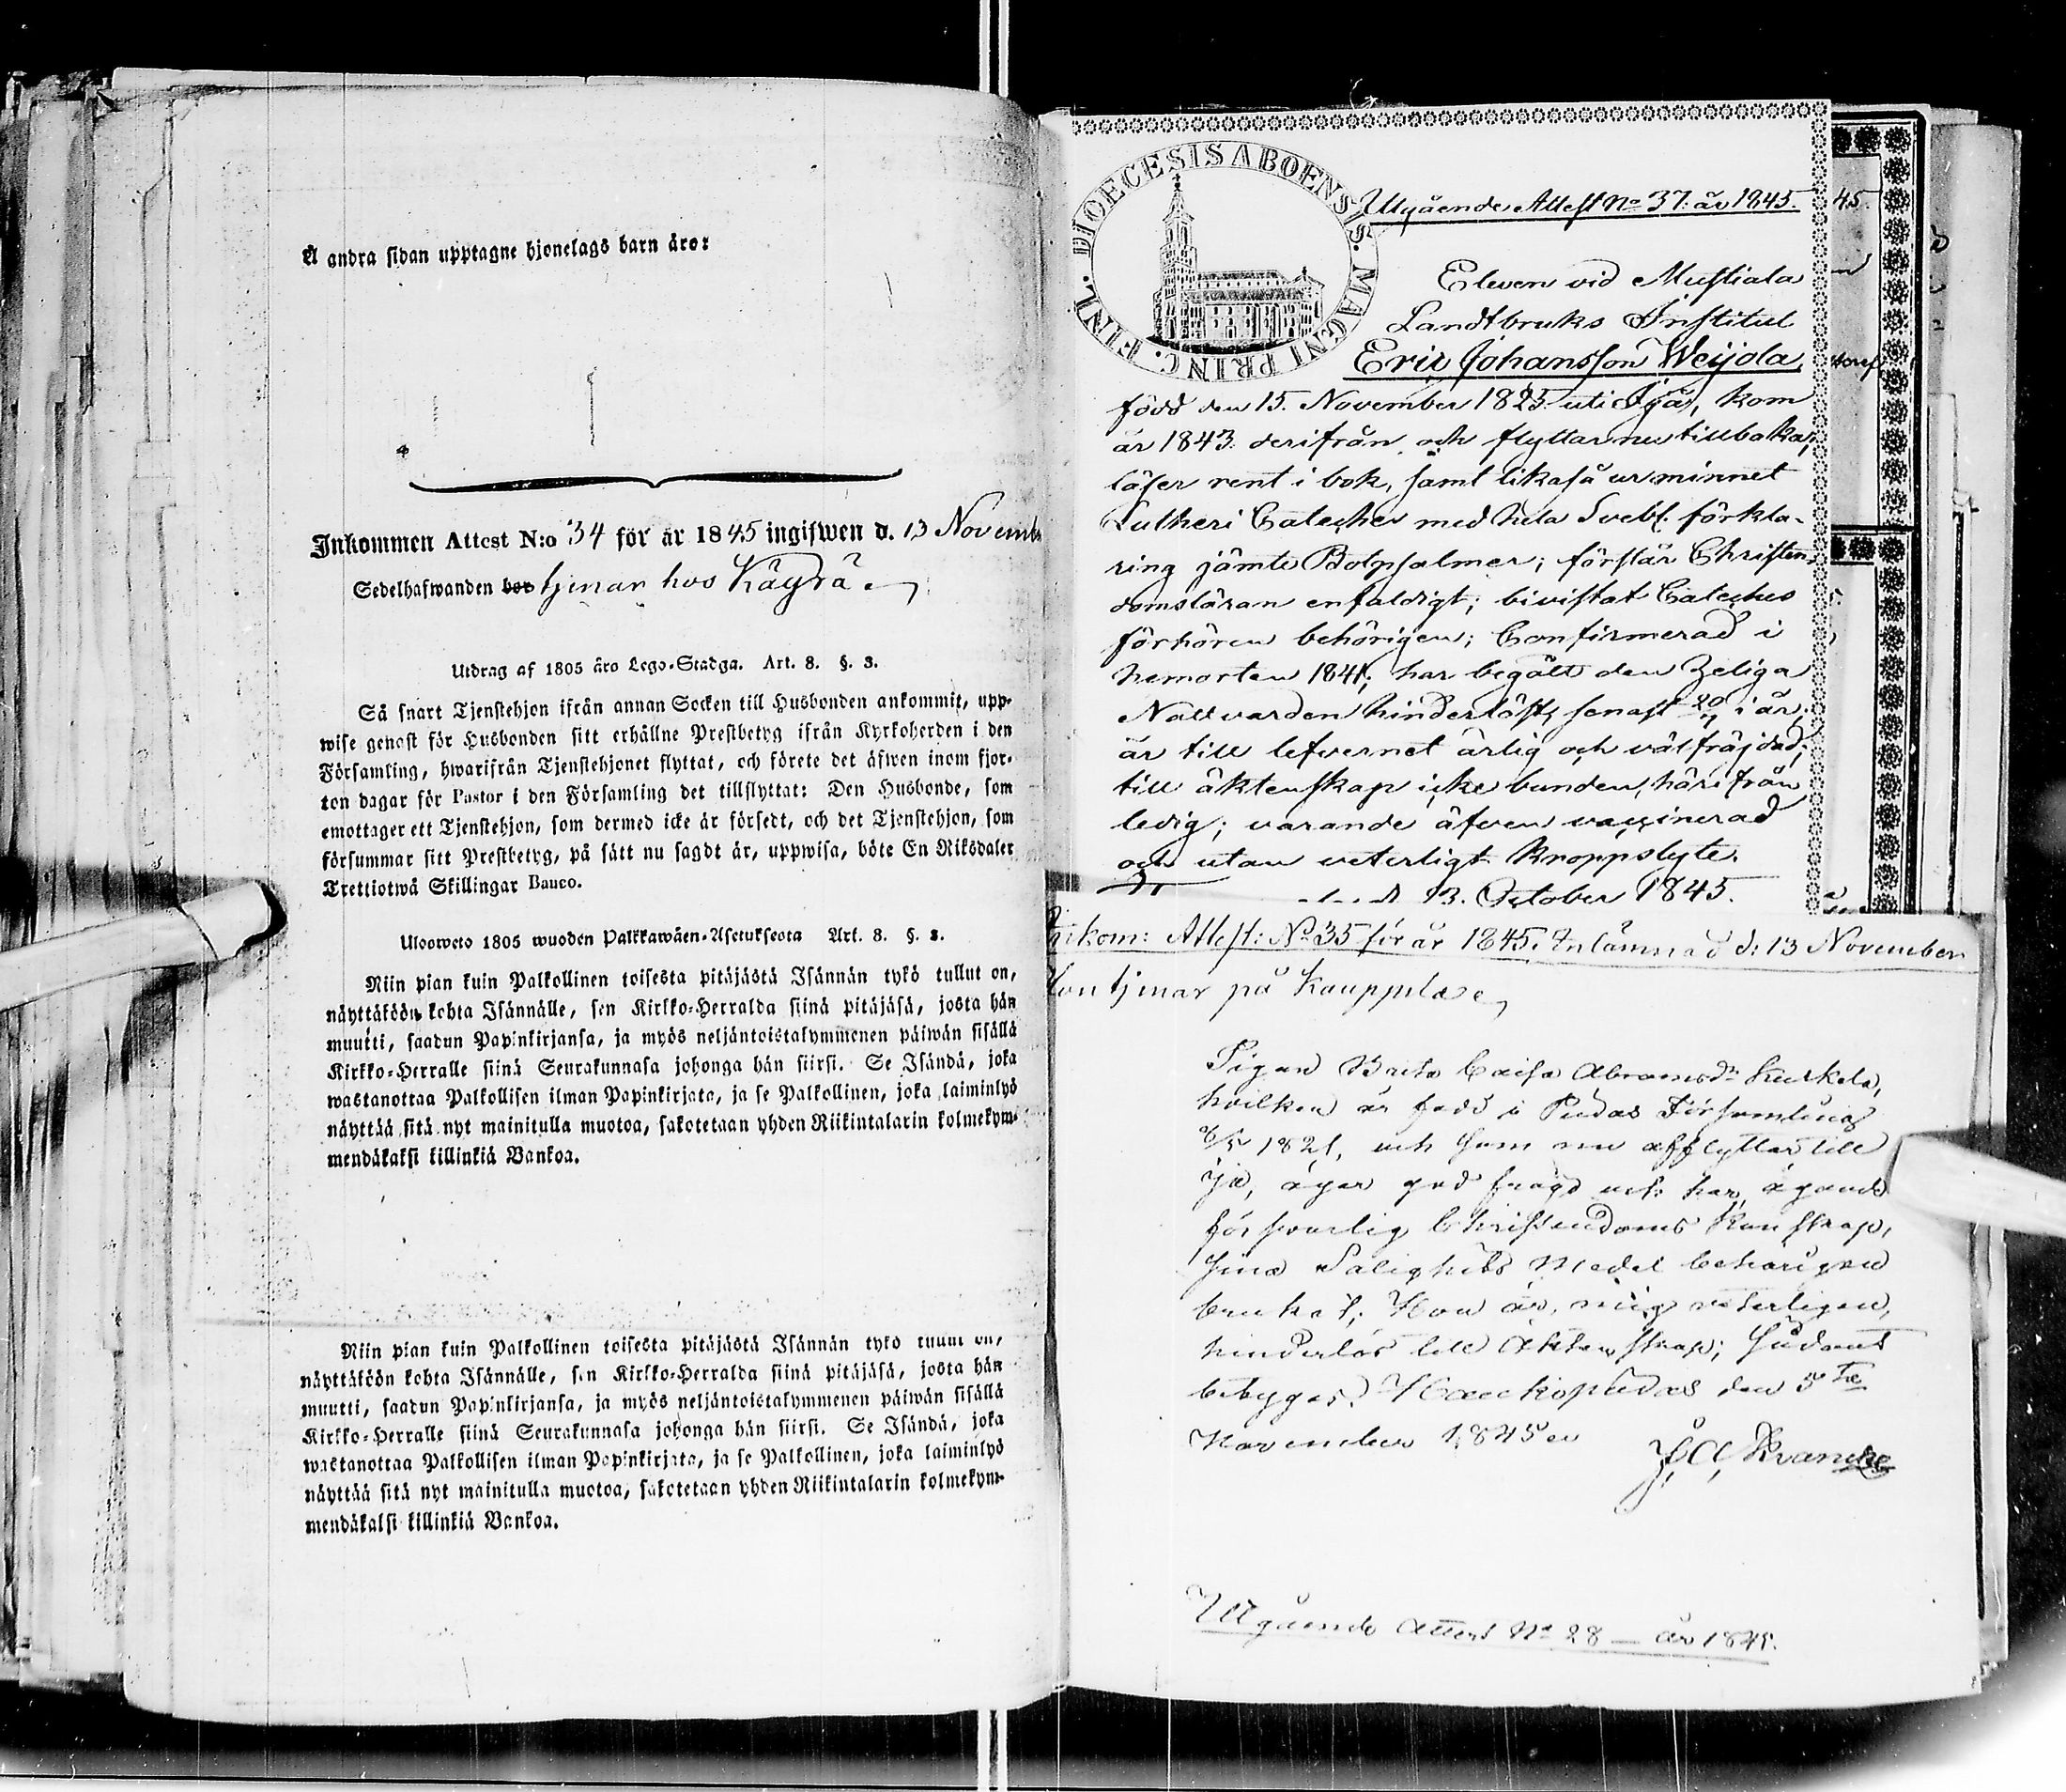 Å andra sidan upptagne hjonelags barn äro:
Inkommen Attest N:o 34 för år 1845 ingifwen d. 13 Novemb
Sedelhafwanden bor tjenar hos Käyrä
Utdrag af 1805 års Lego-Stadga. Art. 8. §. 3.
Så snart Tjenstehjon ifrån annan Socken till Husbonden ankommit, upp-
wise genast för Husbonden sitt erhållne Prestbetyg ifrån Kyrkoherden i den
Församling, hwarifrån Tjenstehjonet flyttat, och förete det äfwen inom fjor-
ton dagar för Pastor i den Församling det tillflyttat: Den Husbonde, som
emottager ett Tjenstehjon, som dermed icke är försedt, och det Tjenstehjon, som
försummar sitt Prestbetyg, på sätt nu sagdt är, uppwisa, böte En Riksdaler
Trettiotwå Skillingar Banco.
Uloosweto 1805 wuoden Palkkawäen-Asetuksesta Art. 8. §. 3.
Niin pian kuin Palkollinen toisesta pitäjästä Isännän tykö tullut on,
näyttäköön kohta Isännälle, sen Kirkko-Herralda siinä pitäjäsä, josta hän
muutti, saadun Papinkirjansa, ja myös neljäntoistakymmenen päiwän sisällä
Kirkko-Herralle siinä Seurakunnasa johonga hän siirsi. Se Isändä, joka
wastanottaa Palkollisen ilman Papinkirjata, ja se Palkollinen, joka laiminlyö
näyttää sitä nyt mainitulla muotoa, sakotetaan yhden Riikintalarin kolmekym-
mendäkaksi killinkiä Bankoa.
Niin pian kuin Palkollinen toisesta pitäjästä Isännän tykö tullut on,
näyttäköön kohta Isännälle, sen Kirkko-Herralda siinä pitäjäsä, josta hän
muutti, saadun Papinkirjansa, ja myös neljäntoistakymmenen päiwän sisällä
Kirkko-Herralle siinä Seurakunnasa johonga hän siirsi. Se Isändä, joka
wastanottaa Palkollisen ilman Papinkirjata, ja se Palkollinen, joka laiminlyö
näyttää sitä nyt mainitulla muotoa, sakotetaan yhden Riikintalarin kolmekym-
mendäkaksi killinkiä Bankoa.
DIOECESIS ABOENSIS. MAGNI PRINC. FINL.
Utgående Attest No 37. år 1845.
45.
Eleven vid Mustiala
Landtbruks Institut
Eric Johansson Weijola,
född den 15. November 1825 uti Ijå, kom
år 1843 derifrån och flyttar nu tillbaka;
läser rent i bok, samt likaså ur minnet
Lutheri Cateches med hela Svebl. förkla-
ring jämte Botpsalmer; förstår Christen-
domsläran enfaldigt; bivistat Cateches
förhören behörigen; Confirmerad i
hemorten 1841; har begått den Heliga
Nattvarden hinderlöst, senast i år;
är till lefvernet ärlig och välfräjdad;
till äktenskap icke bunden, härifrån
ledig; varande äfven vaccinerad
och utan veterligt kroppslyte.
13. October 1845.
Inkom: Attest: No 35 för år 1845. Inlämnad d: 13 November
Hon tjenar på Kauppila
Pigan Brita Caisa Abramsdr Kurkela,
hvilken är född i Pudas Församling
1821, och som nu afflyttar till
Ijå, äger god frägd och har, ägande
försvarlig Christendoms Kunskap,
sina Salighets Medel behörigen
brukat; Hon är, mig veterligen,
hinderlös till Äktenskap; Sådant
betygas. Haukipudas den 5te
November 1845
Utgående Attest No 28 — år 1845.